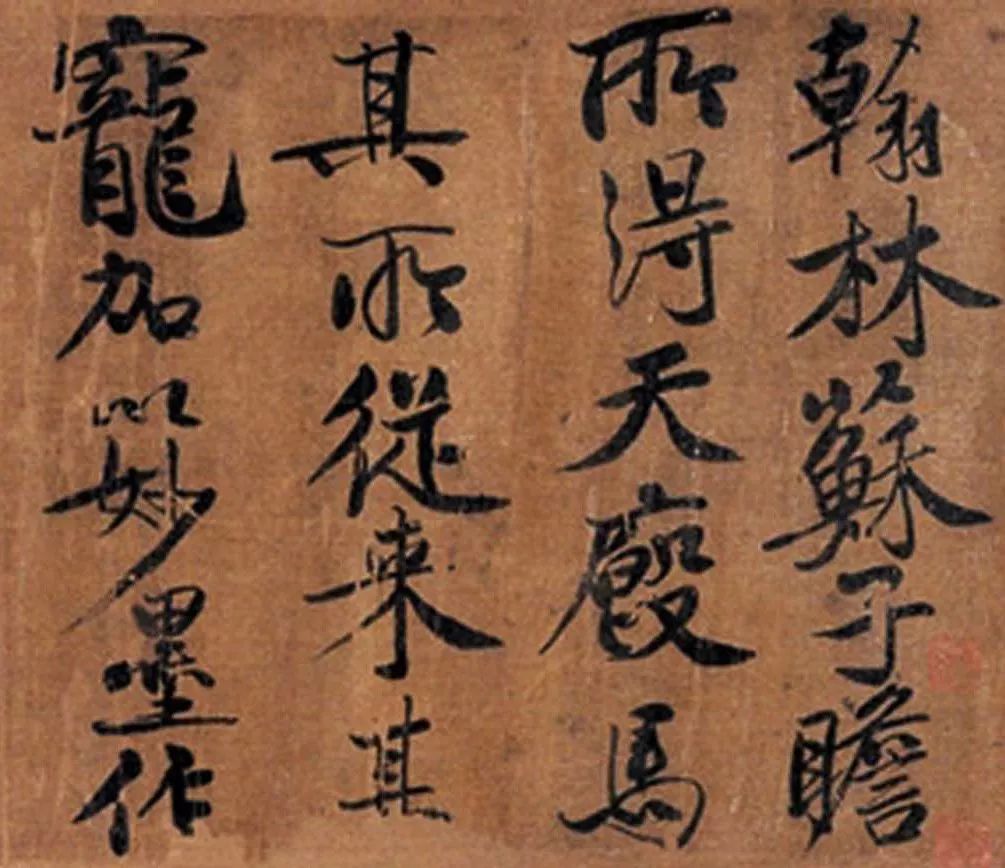 翰林蘇子瞻
所得天廄馬
其所從來其
寵加以妙墨作